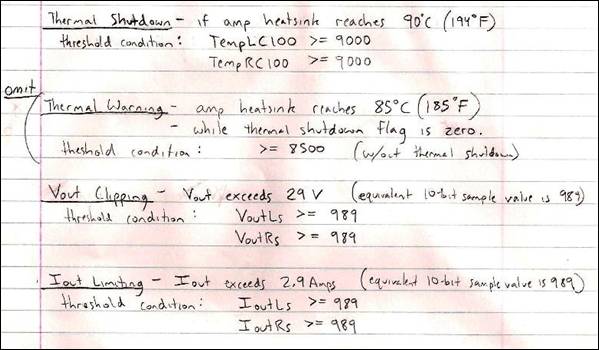 Thermal Shutdown - if amp heatsink reaches 90°C (194°F)
threshold condition: TempLC100 >= 9000
TempRC100 >= 9000
omit
Thermal Warning - amp heatsink reaches 85°C (185°F)
- while thermal shutdown flag is zero.
theshold condition: >= 8500 (w/out thermal shutdown)
Vout Clipping - Vout exceeds 29 V (equivalent 10-bit sample value is 989)
threshold condition: VoutLs >= 989
VoutRs >= 989
Iout Limiting - Iout exceeds 2.9 Amps (equivalent 10-bit sample value is 989)
threshold condition: IoutLs >= 989
IoutRs >= 989